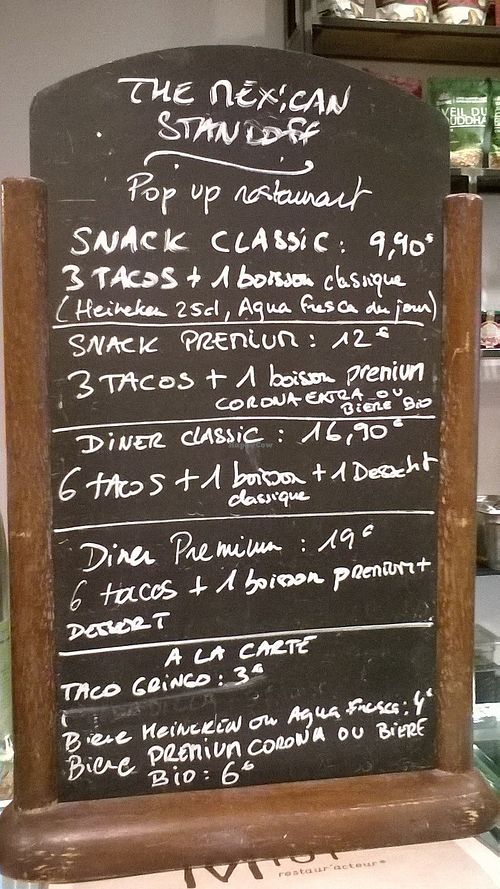 THE MEXICAN
STANDOFF
Pop up restaurant
SNACK CLASSIC : 9,90€
3 TACOS + 1 boisson classique
(Heineken 25cl, Agua fresca du jour)
SNACK PREMIUM : 12€
3 TACOS + 1 boisson premium
CORONA EXTRA OU
BIERE BIO
DINER CLASSIC : 16,90€
6 tacos + 1 boisson + 1 Dessert
classique
Diner Premium : 19€
6 tacos + 1 boisson premium +
DESSERT
A LA CARTE
TACO GRINGO : 3€
Biere HEINEKEN ou Agua Fresca : 4€
Biere PREMIUM CORONA OU BIERE
BIO : 6€
EIL DU
UDDHA
restaur'acteur